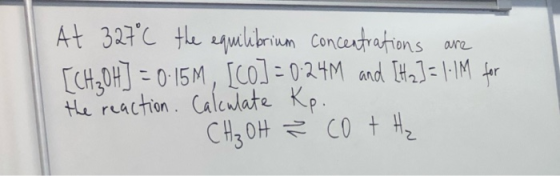 At 327°C the equilibrium concentrations are
[CH₃OH] = 0.15M, [CO] = 0.24M and [H₂] = 1.1M for
the reaction. Calculate Kp.
CH₃OH ⇌ CO + H₂